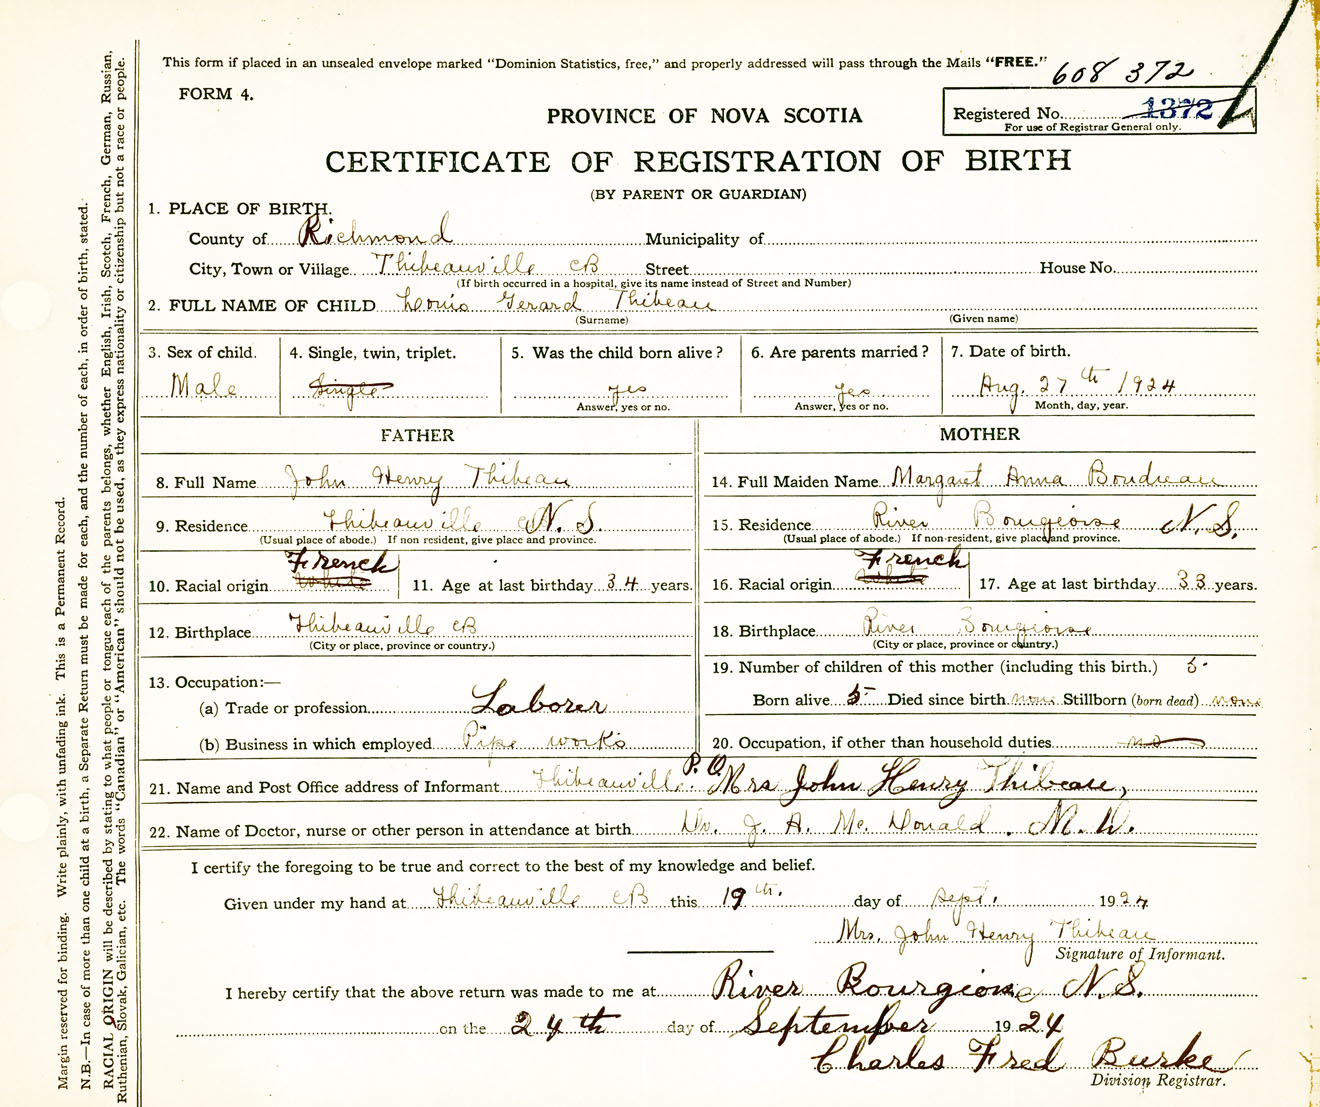 This form if placed in an unsealed envelope marked "Dominion Statistics, free," and properly addressed will pass through the Mails "FREE."
608 372
FORM 4.
PROVINCE OF NOVA SCOTIA
Registered No. 1372
For use of Registrar General only.
CERTIFICATE OF REGISTRATION OF BIRTH
(BY PARENT OR GUARDIAN)
1. PLACE OF BIRTH.
County of Richmond Municipality of
City, Town or Village Thibeauville CB Street House No.
(If birth occurred in a hospital, give its name instead of Street and Number)
2. FULL NAME OF CHILD Louis Gerard Thibeau
(Surname) (Given name)
3. Sex of child. 4. Single, twin, triplet. 5. Was the child born alive? 6. Are parents married? 7. Date of birth.
Male Single yes yes Aug. 27th 1924
Answer, yes or no. Answer, yes or no. Month, day, year.
FATHER MOTHER
8. Full Name John Henry Thibeau 14. Full Maiden Name Margaret Anna Boudreau
9. Residence Thibeauville N.S. 15. Residence River Bourgeoise N.S.
(Usual place of abode.) If non resident, give place and province. (Usual place of abode.) If non-resident, give place and province.
French French
10. Racial origin White 11. Age at last birthday 34 years. 16. Racial origin White 17. Age at last birthday 33 years.
12. Birthplace Thibeauville CB 18. Birthplace River Bourgeoise
(City or place, province or country.) (City or place, province or country.)
19. Number of children of this mother (including this birth.) 5
13. Occupation:—
Born alive 5 Died since birth none Stillborn (born dead) none
(a) Trade or profession Laborer
(b) Business in which employed Pipe works 20. Occupation, if other than household duties no
21. Name and Post Office address of Informant Thibeauville P.O. Mrs John Henry Thibeau,
22. Name of Doctor, nurse or other person in attendance at birth Dr. J. A. Mc Donald. M.D.
I certify the foregoing to be true and correct to the best of my knowledge and belief.
Given under my hand at Thibeauville CB this 19th. day of Sept. 1924
Mrs. John Henry Thibeau
Signature of Informant.
I hereby certify that the above return was made to me at River Bourgeoise N.S.
on the 24th day of September 1924
Charles Fred Burke
Division Registrar.
Margin reserved for binding. Write plainly, with unfading ink. This is a Permanent Record.
N.B.—In case of more than one child at a birth, a Separate Return must be made for each, and the number of each, in order of birth, stated.
RACIAL ORIGIN will be described by stating to what people or tongue each of the parents belongs, whether English, Irish, Scotch, French, German, Russian,
Ruthenian, Slovak, Galician, etc. The words "Canadian" or "American" should not be used, as they express nationality or citizenship but not a race or people.